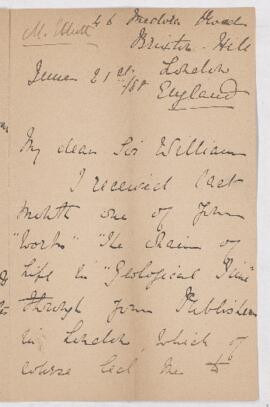 46 Road
Brixton Hill
June 21st /80 London
England
My dear Sir William
I received last
month one of your
"Works" "The Chain of
Life in "Geological Time"
through your Publisher
in London, which of
course led me to